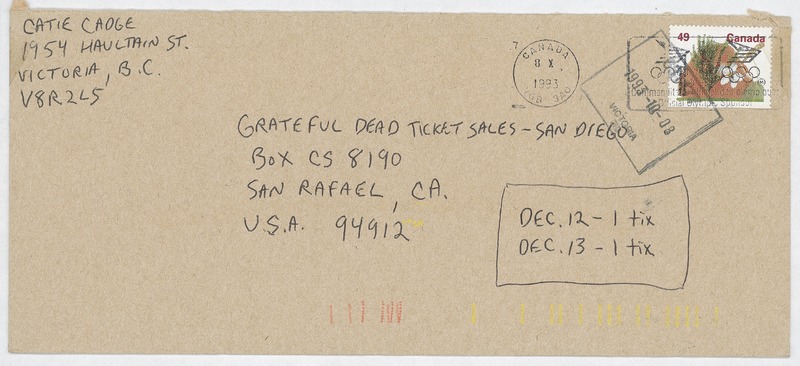 CATIE CADGE
1954 HAULTAIN ST.
VICTORIA, B.C.
V8R2L5
49 Canada
CANADA
8 X
1993
1993-10-08
VICTORIA
GRATEFUL DEAD TICKET SALES - SAN DIEGO
BOX CS 8190
SAN RAFAEL, CA.
U.S.A. 94912
DEC. 12 - 1 tix
DEC. 13 - 1 tix